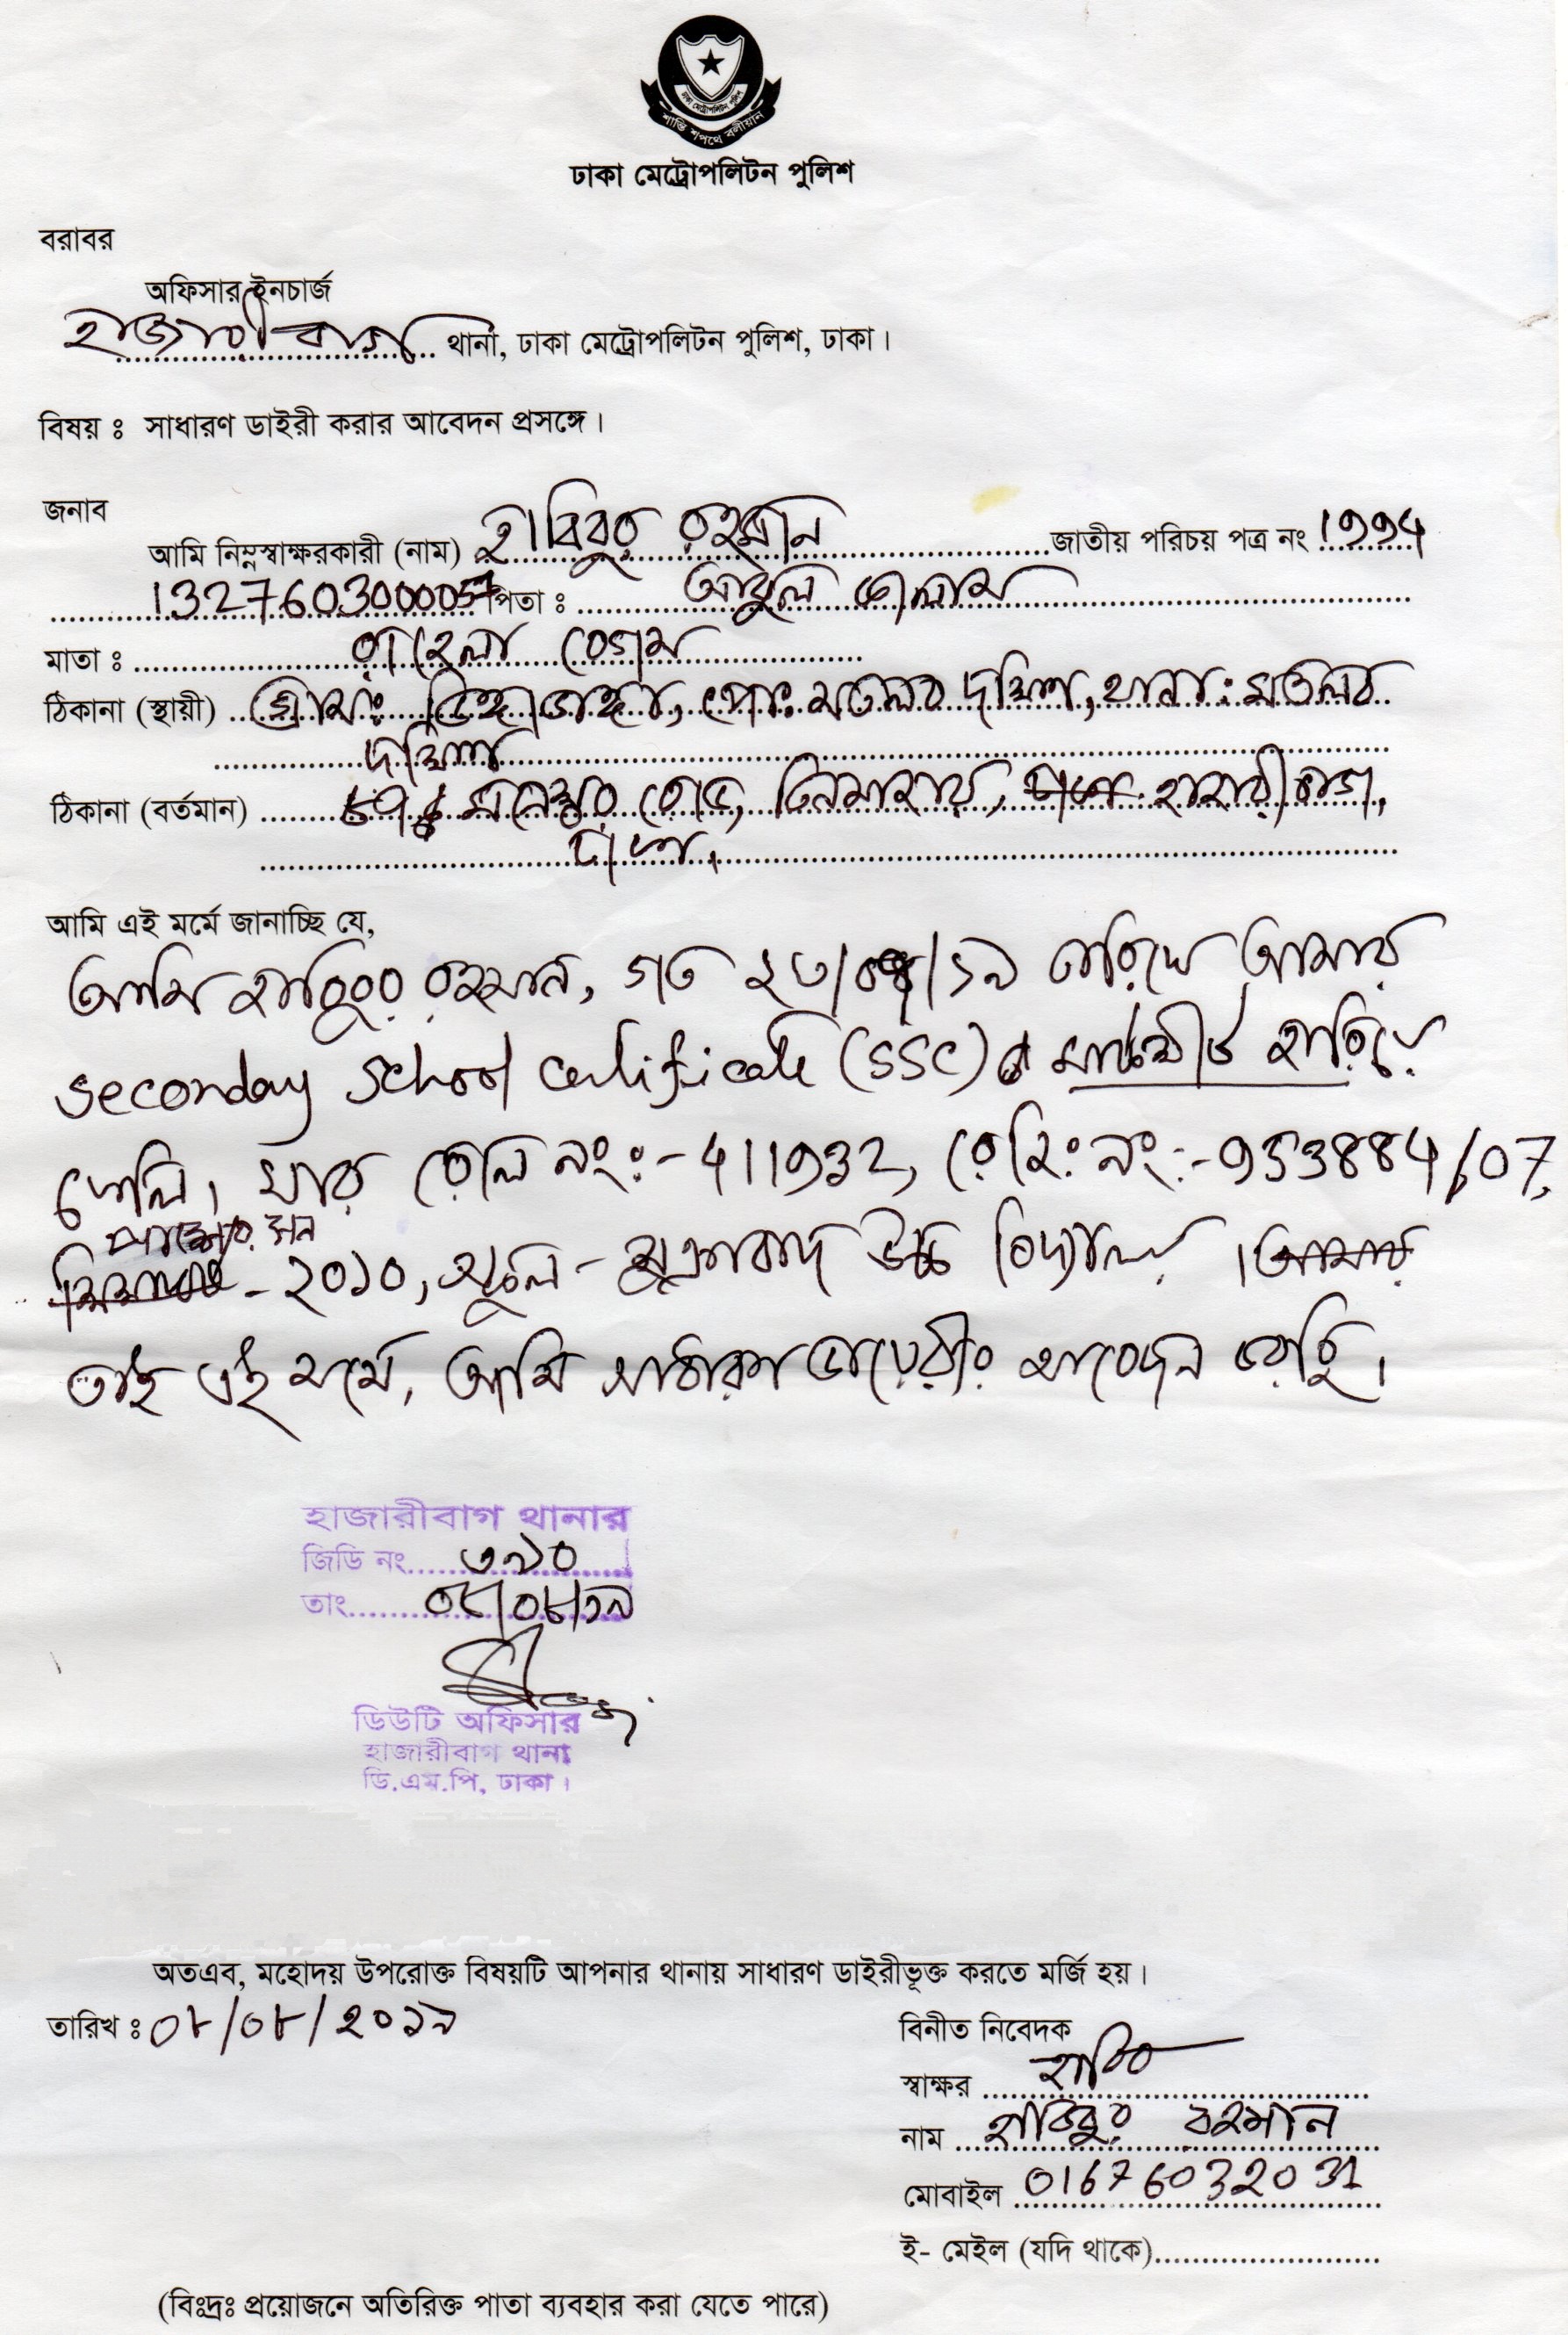 ঢাকা মেট্রোপলিটন পুলিশ
শান্তি শপথে বলীয়ান
ঢাকা মেট্রোপলিটন পুলিশ
বরাবর
অফিসার ইনচার্জ
হাজারীবাগ থানা, ঢাকা মেট্রোপলিটন পুলিশ, ঢাকা।
বিষয় ঃ সাধারণ ডাইরী করার আবেদন প্রসঙ্গে।
জনাব
আমি নিম্নস্বাক্ষরকারী (নাম) হাবিবুর রহমান জাতীয় পরিচয় পত্র নং 1994
1327603000057 পিতা ঃ আবুল কালাম
মাতা ঃ রাহেলা বেগম
ঠিকানা (স্থায়ী) গ্রামঃ ডিঙ্গাভাঙ্গা, পোঃ মতলব দক্ষিণ, থানা: মতলব
দক্ষিণ
ঠিকানা (বর্তমান) মনেশ্বর রোড, তিনমাজার, হাজারীবাগ,
ঢাকা,
আমি এই মর্মে জানাচ্ছি যে,
আমি হাবিবুর রহমান, গত ২৩/০৪/১৯ তারিখে আমার
Seconday School Certificate (SSC) র মার্কশীট হারিয়ে
ফেলি। যার রোল নং:- 411932, রেজি: নং:- 953884/07,
পাশের সন
- ২০১০, স্কুল - শুক্রাবাদ উচ্চ বিদ্যালয়। আমার
তাই এই মর্মে, আমি সাধারন ডায়েরীর আবেদন করছি।
হাজারীবাগ থানার
জিডি নং ৩৯০
তাং ০৮/০৮/১৯
ডিউটি অফিসার
হাজারীবাগ থানা
ডি.এম.পি, ঢাকা।
অতএব, মহোদয় উপরোক্ত বিষয়টি আপনার থানায় সাধারণ ডাইরীভূক্ত করতে মর্জি হয়।
তারিখ ঃ ০৮/০৮/২০১৯
বিনীত নিবেদক
স্বাক্ষর হাবিব
নাম হাবিবুর রহমান
মোবাইল 01676032031
ই- মেইল (যদি থাকে)
(বিঃদ্রঃ প্রয়োজনে অতিরিক্ত পাতা ব্যবহার করা যেতে পারে)